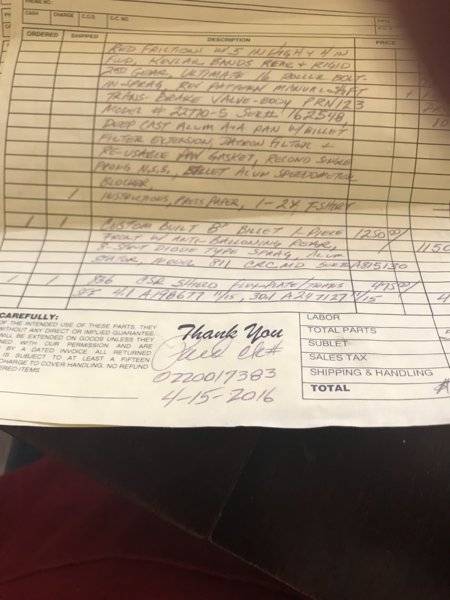 CASH CHARGE C.O.D.
ORDERED SHIPPED DESCRIPTION PRICE
RED FRICTIONS W/5 IN HIGH & 4 IN
FWD, KEVLAR BANDS REAR & RIGID
2ND GEAR, ULTIMATE 16 ROLLER BOLT-
IN SPRAG, REV PATTERN MANUAL SHIFT
TRANS-BRAKE VALVE-BODY PRN123
MODEL # 22710-5 SER# 162548
DEEP CAST ALUM A&A PAN W/ BILLET
FILTER EXTENSION, DACRON FILTER &
RE-USABLE PAN GASKET, RECOND SINGLE
PRONG N.S.S., BILLET ALUM SPEEDOMETER
BLOCKER
1 INSTRUCTIONS, PRESS PAPER, 1-2X T-SHIRT
1 1 CUSTOM BUILT 8" BILLET 1-PIECE 1250 00/ 1150
FRONT W/ ANTI-BALLOONING REAR,
DIODE TYPE SPRAG, ALUM
STATOR, MODEL 811 CRC.MD SER# A815130
1 1 CSR SHIELD FLEX-PLATE/TRANS 475 00/ 4
SFI 4.1 A198677 11/15, 30.1 A287127 /15
CAREFULLY:
OF THE INTENDED USE OF THESE PARTS, THEY
WITHOUT ANY DIRECT OR IMPLIED GUARANTEE.
WILL BE EXTENDED ON GOODS UNLESS THEY
NED WITH OUR PERMISSION AND ARE
BY A DATED INVOICE. ALL RETURNED
IS SUBJECT TO AT LEAST A FIFTEEN
CHARGE TO COVER HANDLING. NO REFUND
ERED ITEMS.
Thank You
Paid Ck#
0220017383
4-15-2016
LABOR
TOTAL PARTS
SUBLET
SALES TAX
SHIPPING & HANDLING
TOTAL